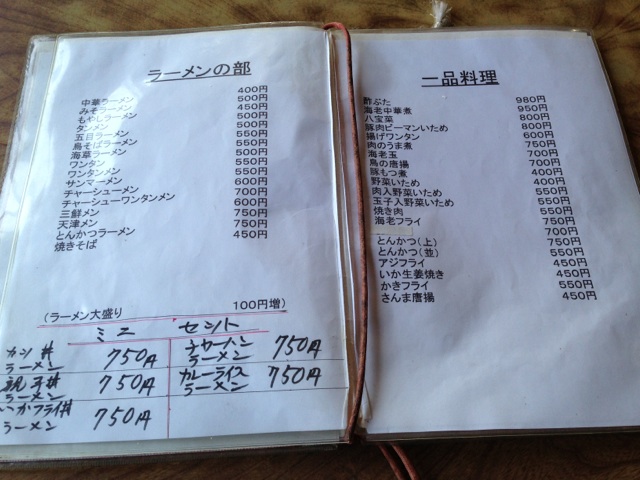 ラーメンの部
中華ラーメン 400円
みそラーメン 500円
もやしラーメン 450円
タンメン 500円
五目ラーメン 500円
鳥そばラーメン 550円
海草ラーメン 550円
ワンタン 500円
ワンタンメン 550円
サンマーメン 550円
チャーシューメン 600円
チャーシューワンタンメン 700円
三鮮メン 600円
天津メン 750円
とんかつラーメン 750円
焼きそば 450円
（ラーメン大盛り 100円増）
ミニ セント
カツ丼 ラーメン 750円
親子丼 ラーメン 750円
いかフライ丼 ラーメン 750円
チャーハン ラーメン 750円
カレーライス ラーメン 750円
一品料理
酢ぶた 980円
海老中華煮 950円
八宝菜 800円
豚肉ピーマンいため 800円
揚げワンタン 600円
肉のうま煮 750円
海老玉 700円
鳥の唐揚 700円
豚もつ煮 400円
野菜いため 400円
肉入野菜いため 550円
玉子入野菜いため 550円
焼き肉 550円
海老フライ 750円
700円
とんかつ（上） 750円
とんかつ（並） 550円
アジフライ 450円
いか生姜焼き 450円
かきフライ 450円
さんま唐揚 450円